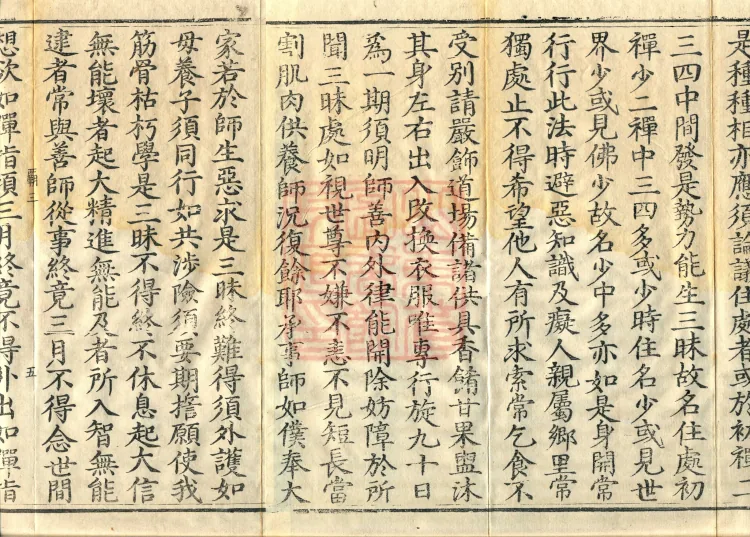 是種種相亦應須住處者或於初禪二
三四中間發是勢力能生三昧故名住處初
禪少二禪中三四多或少時住名少或見世
界少或見佛少故名少中多亦如是身開常
行行此法時避惡知識及癡人親屬鄉里常
獨處止不得希望他人有所求索常乞食不
受別請嚴飾道場備諸供具香餚甘果盥沐
其身左右出入改換衣服唯專行旋九十日
為一期須明師善内外律能開除妨障於所
聞三昧處如視世尊不嫌不恚不見短長當
割肌肉供養師況復餘耶承事師如僕奉大
家若於師生惡求是三昧終難得須外護如
母養子須同行如共涉險須要期願使我
筋骨枯朽學是三昧不得終不休息起大信
無能壞者起大精進無能及者所入智無能
逮者常與善師從事終竟三月不得念世間
三 五
想欲如彈指頃三月終竟不得臥出如彈指